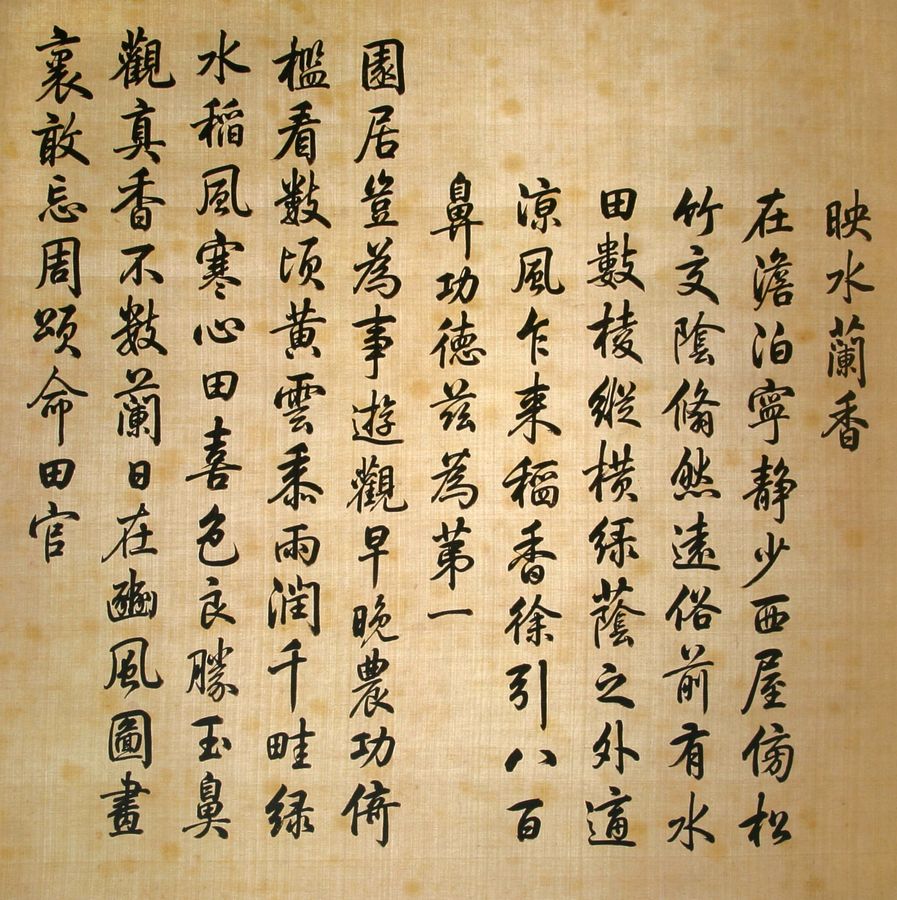 映水蘭香
在澹泊寧静少西屋傍松
竹交陰翛然遠俗前有水
田數棱縱横緑蔭之外適
涼風乍来稻香徐引八百
鼻功德兹為第一
園居豈為事遊觀早晩農功倚
檻看數頃黄雲黍雨潤千畦緑
水稻風寒心田喜色良勝玉鼻
觀真香不數蘭日在豳風圖畫
裏敢忘周頌命田官